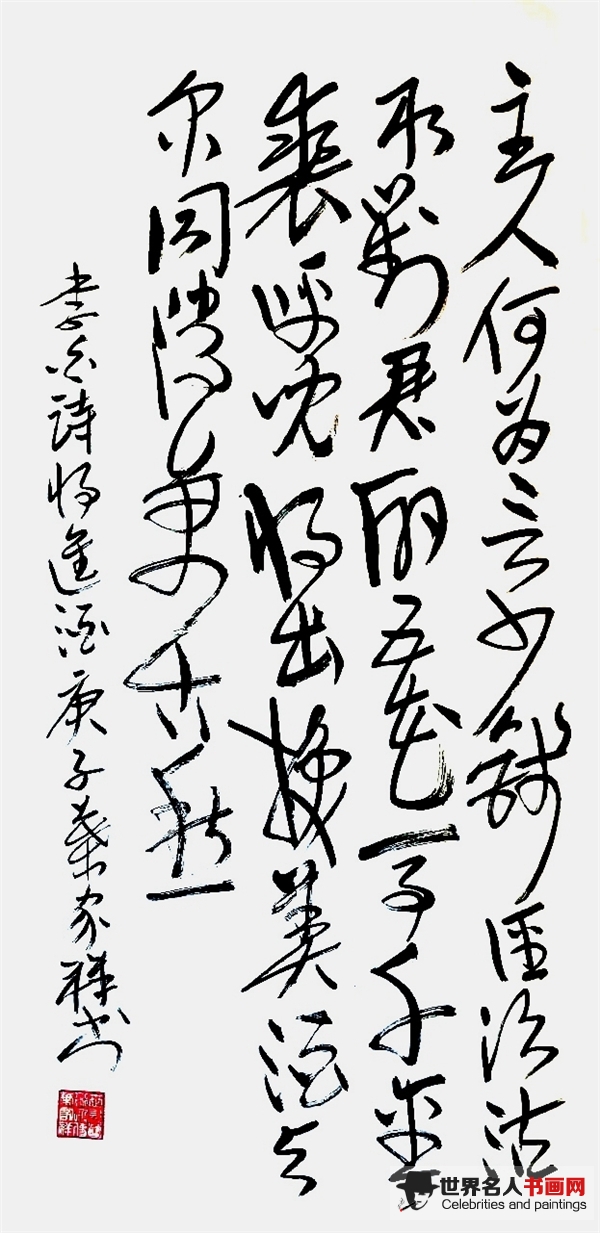 主人何为言少錢徑須沽
取對君酌五花马千金
裘呼児将出換美酒与
尔同銷萬古愁
李白詩将進酒庚子葉家祥书
世界名人书画网
Celebrities and paintings